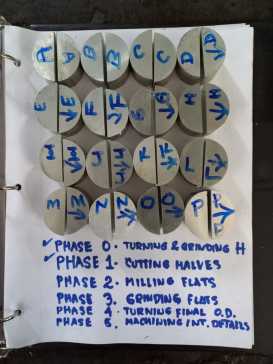 A A B B C C D D
E E F F G H H
M M
3 Z Z O O P P
✓ PHASE 0. TURNING & GRINDING H
✓ PHASE 1. CUTTING HALVES
PHASE 2. MILLING FLATS
PHASE 3. GRINDING FLATS
PHASE 4. TURNING FINAL O.D.
PHASE 5. MACHINING INT. DETAILS